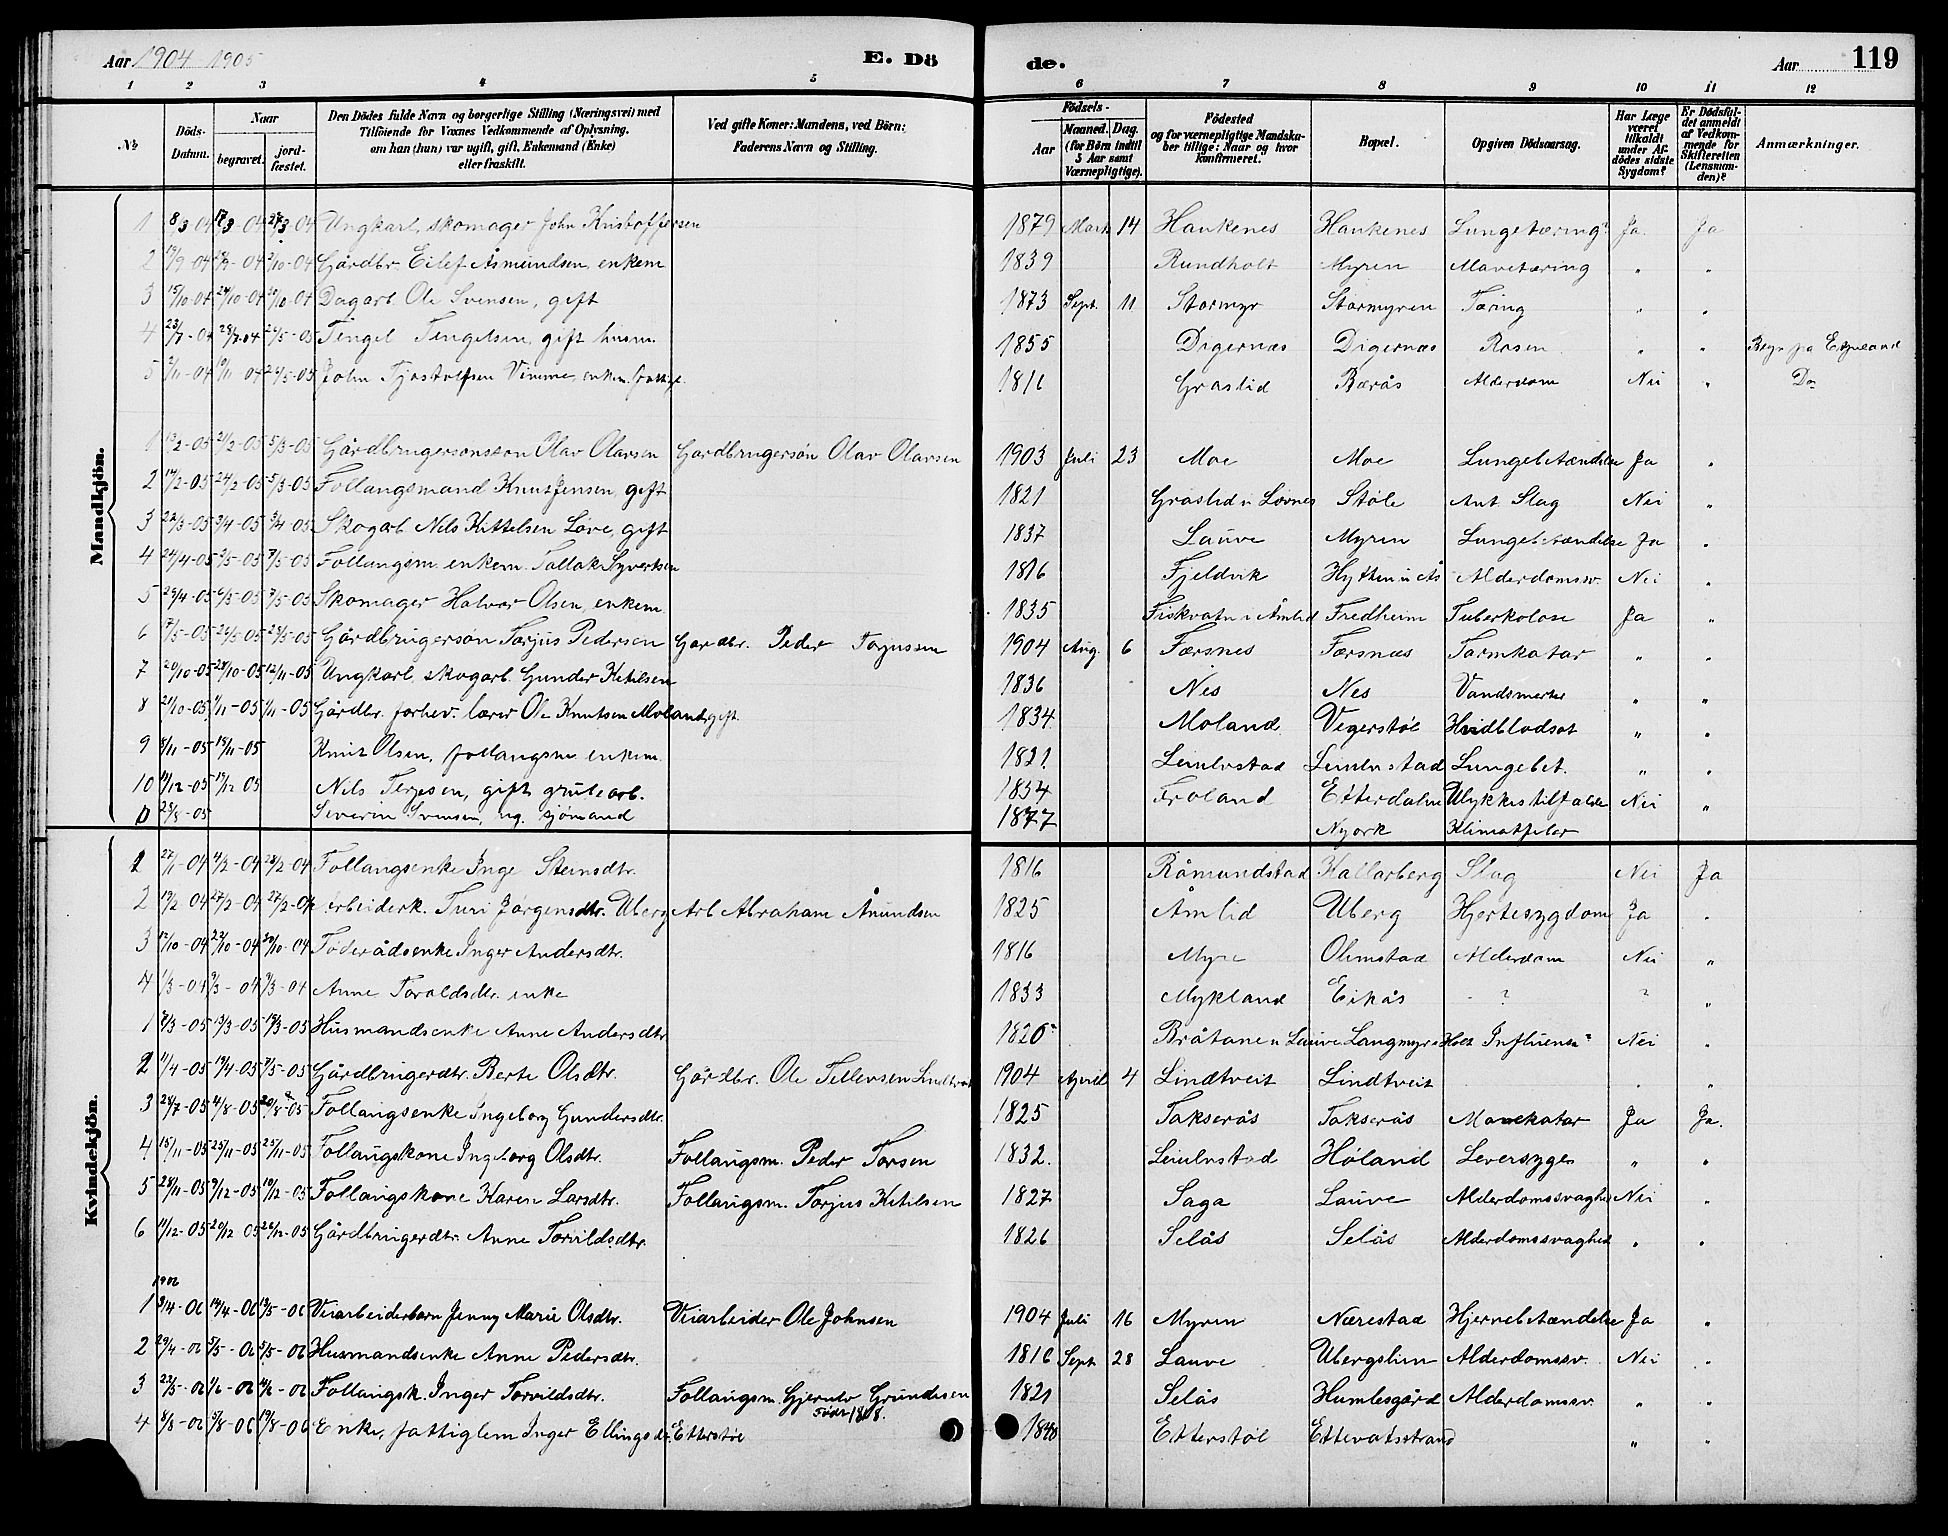 Aar 1904 1905 E. Dö de. Aar 119
1 2 3 4 5 6 7 8 9 10 11 12
№ Döds-Datum. Naar begravet. jordfæstet. Den Dödes fulde Navn og borgerlige Stilling (Næringsvei) med Tilföiende for Voxnes Vedkommende af Oplysning, om han (hun) var ugift, gift, Enkemand (Enke) eller fraskilt. Ved gifte Koner: Mandens, ved Börn: Faderens Navn og Stilling. Födsels- Aar Maaned. Dag. (for Börn indtil 5 Aar samt Værnepligtige). Födested og for værnepligtige Mandskaber tillige: Naar og hvor konfirmeret. Bopæl. Opgiven Dödsaarsag. Har Læge været tilkaldt under Afdödes sidste Sygdom? Er Dödsfaldet anmeldt af Vedkommende for Skifteretten (Lensmanden)? Anmærkninger.
Mandkjön.
1 8/3 04 17/3-04 27/3-04 Ungkarl, skomager John Kristoffersen 1879 Marts 14 Haukenes Haukenes Lungetæring? Ja. Ja
2 /9-04 /9-04 2/10-04 Gårdbr. Eilef Åsmundsen, enkem 1839 Rundholt Myren Mavetæring " "
3 15/10-04 24/10-04 30/10-04 Dagarb. Ole Svensen, gift 1873 Sept. 11 Stormyr Stormyren Tæring " "
4 23/7-04 28/7-04 /5-05 Tengel Tengelsen, gift husm. 1855 Digernæs Digernæs Rosen " "
5 2/11-04 /11 04 /5-05 John Tjostolfsen Vimme, enkem. 1816 Graslid Barås Alderdom Nei " Do
1 13/2-05 21/2-05 5/3-05 Gårdbrugersønssøn Olav Olavsen Gardbrugersøn Olav Olavsen 1903 Juli 23 Moe Moe Lungebetændelse Ja "
2 14/2-05 24/2-05 5/3-05 Follaugsmand Knut Jensen, gift 1821 Graslid u Løvnes Støle Ant. Slag Nei "
3 22/3-05 3/4-05 9/4-05 Skogarb. Nils Kittelsen Løve, gift 1837 Lauve Myren Lungebetændelse Ja "
4 24/4-05 2/5-05 7/5-05 Follaugsm. enkem. Tallak Syvertsen 1816 Fjeldvik Hytten u Ås Alderdomssv. Nei "
5 29/4-05 6/5-05 7/5-05 Skomager Halvor Olsen, enkem. 1835 Fiskvatn i Åmlid Fredheim Tuberkolose Ja "
6 17/5-05 24/5-05 28/5-05 Gårdbrugersøn Torjus Pedersen Gardbr. Peder Torjussen 1904 Aug. 6 Færsnes Færsnæs Tarmkatar " "
7 20/10-05 28/10-05 12/11-05 Ungkarl skogarb. Gunder Ketilsen 1836 Nes Nes Vandsmerter " "
8 21/10-05 1/11-05 /11-05 Gårdbr. forhev. lærer Ole Knutsen Moland, gift. 1834 Moland Vegerstøl Hvidblodsot " "
9 8/11-05 18/11-05 Knut Olsen, follaugsm enkem. 1821 Leiulvstad Leiulvstad Lungebet. " "
10 11/12-05 17/12 05 Nils Terjesen, gift, grubearb. 1854 Froland Etterdalen Ulykkestilfælde Nei "
23/8-05 Severin Svensen, ug. sjömand 1877 Nyork Klimatfeber
Kvindekjön.
1 27/1-04 4/2-04 28/2-04 Follaugsenke Inge Steinsdtr. 1816 Råmundstad Kallarberg Slag Nei Ja
2 19/2 04 27/2-04 27/2-04 Arbeiderk. Turi Jørgensdtr. Uberg Arb Abraham Anundsen 1825 Åmlid Uberg Hjertesygdom Ja "
3 12/10-04 22/10-04 30/10-04 Föderådsenke Inger Andersdtr. 1816 Myre Olimstad Alderdom Nei "
4 1/3-04 9/3-04 9/3-04 Anne Toraldsdtr. enke 1833 Mykland Eikås - ? ? "
1 /3-05 13/3-05 19/3-05 Husmandsenke Anne Andersdtr 1820 Bråtane u Lauve Langmyr u Holt Influensa Nei "
2 11/4-05 19/4-05 7/5-05 Gårdbrugerdtr. Berte Olsdtr. Gårdbr. Ole Tellevsen Lindtveit 1904 April 4 Lindtveit Lindtveit " "
3 28/7-05 4/8-05 20/8-05 Follaugsenke Ingeborg Gundersdtr. 1825 Takserås Takserås Mavekatar Ja Ja.
4 15/11-05 25/11-05 25/11-05 Follaugskone Ingeborg Olsdtr. Follaugsm. Peder Torsen 1832. Leiulvstad Høland Leversyge " "
5 28/11-05 9/12-05 10/12-05 Follaugskone Karen Larsdtr. Follaugsm. Torjus Ketilsen 1827 Saga Lauve Alderdomssvaghed Nei "
6 11/12-05 20/12 05 26/12-05 Gårdbrugerdtr. Anne Torvildsdtr. 1826 Selås Selås Alderdomssvaghed " "
1906
1 3/4-06 14/4-06 13/5-06 Veiarbeiderbarn Jenny Marie Olsdtr. Veiarbeider Ole Johnsen 1904 Juli 16 Myren Nærestad Hjernebetændelse Ja "
2 29/4-06 5/5-06 5/5-06 Husmandsenke Anne Pedersdtr. 1816 Sept 28 Lauve Ubergslien Alderdomssv. Nei "
3 22/5-06 1/6-06 4/6-06 Follaugsk. Inger Torvildsdtr. Follaugsm. Gjerulv Grundesen 1821 Selås Humlesgård Alderdomssv. " "
født 1818.
4 8/8-06 /8-06 19/8-06 Enke, fattiglem Inger Ellingsdtr. Etterstøl Etterstøl Ettevatsstrand " "